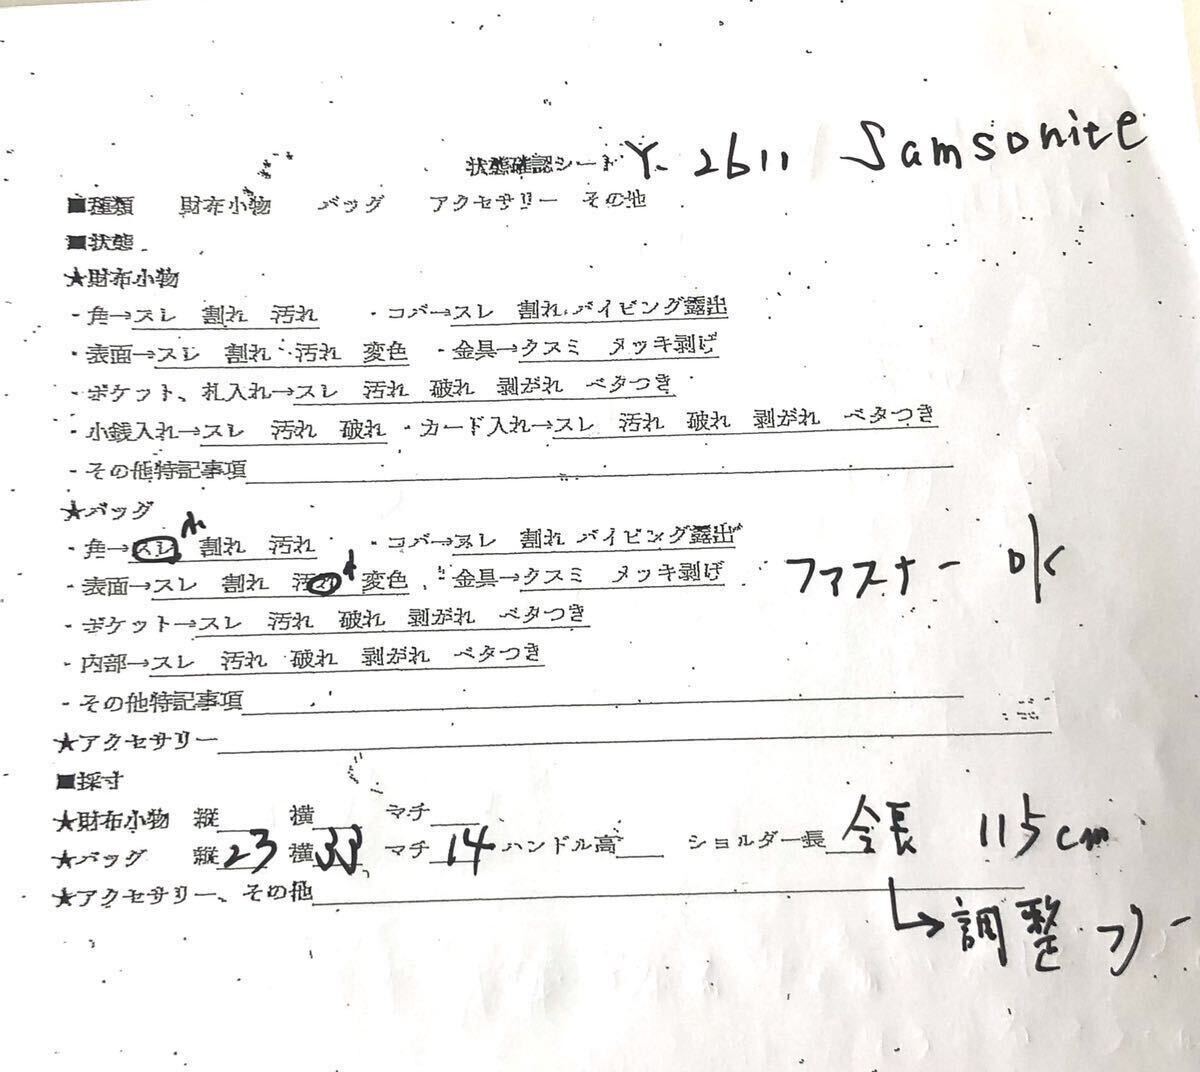 状態確認シート Y-2611 Samsonite
■種類 財布小物 バッグ アクセサリー その他
■状態
★財布小物
・角→スレ 割れ 汚れ ・コバ→スレ 割れ パイピング露出
・表面→スレ 割れ 汚れ 変色 ・金具→クスミ メッキ剥げ
・ポケット、札入れ→スレ 汚れ 破れ 剥がれ ベタつき
・小銭入れ→スレ 汚れ 破れ ・カード入れ→スレ 汚れ 破れ 剥がれ ベタつき
・その他特記事項
★バッグ
・角→スレ 小 割れ 汚れ ・コバ→スレ 割れ パイピング露出
・表面→スレ 割れ 汚れ 小 変色 ・金具→クスミ メッキ剥げ ファスナー OK
・ポケット→スレ 汚れ 破れ 剥がれ ベタつき
・内部→スレ 汚れ 破れ 剥がれ ベタつき
・その他特記事項
★アクセサリー
■採寸
★財布小物 縦 横 マチ
★バッグ 縦 23 横 33 マチ 14 ハンドル高 ショルダー長 全長 115cm
★アクセサリー、その他
→調整